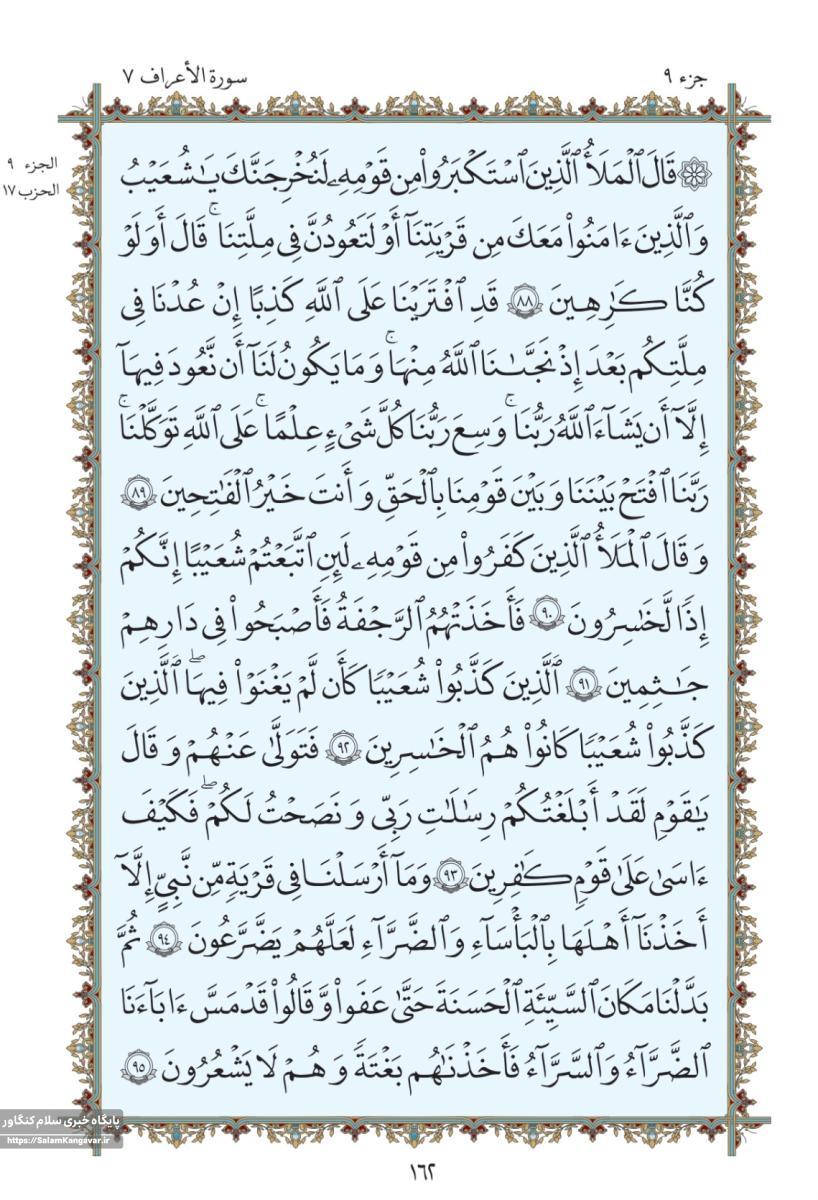 جزء ٩
سورة الأعراف ٧
الجزء ٩
الحزب ١٧
۞ قَالَ ٱلْمَلَأُ ٱلَّذِينَ ٱسْتَكْبَرُوا۟ مِن قَوْمِهِۦ لَنُخْرِجَنَّكَ يَـٰشُعَيْبُ
وَٱلَّذِينَ ءَامَنُوا۟ مَعَكَ مِن قَرْيَتِنَآ أَوْ لَتَعُودُنَّ فِى مِلَّتِنَا ۚ قَالَ أَوَلَوْ
كُنَّا كَـٰرِهِينَ ﴿٨٨﴾ قَدِ ٱفْتَرَيْنَا عَلَى ٱللَّهِ كَذِبًا إِنْ عُدْنَا فِى
مِلَّتِكُم بَعْدَ إِذْ نَجَّىٰنَا ٱللَّهُ مِنْهَا ۚ وَمَا يَكُونُ لَنَآ أَن نَّعُودَ فِيهَآ
إِلَّآ أَن يَشَآءَ ٱللَّهُ رَبُّنَا ۚ وَسِعَ رَبُّنَا كُلَّ شَىْءٍ عِلْمًا ۚ عَلَى ٱللَّهِ تَوَكَّلْنَا ۚ
رَبَّنَا ٱفْتَحْ بَيْنَنَا وَبَيْنَ قَوْمِنَا بِٱلْحَقِّ وَأَنتَ خَيْرُ ٱلْفَـٰتِحِينَ ﴿٨٩﴾
وَقَالَ ٱلْمَلَأُ ٱلَّذِينَ كَفَرُوا۟ مِن قَوْمِهِۦ لَئِنِ ٱتَّبَعْتُمْ شُعَيْبًا إِنَّكُمْ
إِذًا لَّخَـٰسِرُونَ ﴿٩٠﴾ فَأَخَذَتْهُمُ ٱلرَّجْفَةُ فَأَصْبَحُوا۟ فِى دَارِهِمْ
جَـٰثِمِينَ ﴿٩١﴾ ٱلَّذِينَ كَذَّبُوا۟ شُعَيْبًا كَأَن لَّمْ يَغْنَوْا۟ فِيهَا ۖ ٱلَّذِينَ
كَذَّبُوا۟ شُعَيْبًا كَانُوا۟ هُمُ ٱلْخَـٰسِرِينَ ﴿٩٢﴾ فَتَوَلَّىٰ عَنْهُمْ وَقَالَ
يَـٰقَوْمِ لَقَدْ أَبْلَغْتُكُمْ رِسَـٰلَـٰتِ رَبِّى وَنَصَحْتُ لَكُمْ ۖ فَكَيْفَ
ءَاسَىٰ عَلَىٰ قَوْمٍ كَـٰفِرِينَ ﴿٩٣﴾ وَمَآ أَرْسَلْنَا فِى قَرْيَةٍ مِّن نَّبِىٍّ إِلَّآ
أَخَذْنَآ أَهْلَهَا بِٱلْبَأْسَآءِ وَٱلضَّرَّآءِ لَعَلَّهُمْ يَضَّرَّعُونَ ﴿٩٤﴾ ثُمَّ
بَدَّلْنَا مَكَانَ ٱلسَّيِّئَةِ ٱلْحَسَنَةَ حَتَّىٰ عَفَوا۟ وَّقَالُوا۟ قَدْ مَسَّ ءَابَآءَنَا
ٱلضَّرَّآءُ وَٱلسَّرَّآءُ فَأَخَذْنَـٰهُم بَغْتَةً وَهُمْ لَا يَشْعُرُونَ ﴿٩٥﴾
پایگاه خبری سلام کنگاور
https://SalamKangavar.ir
١٦٢